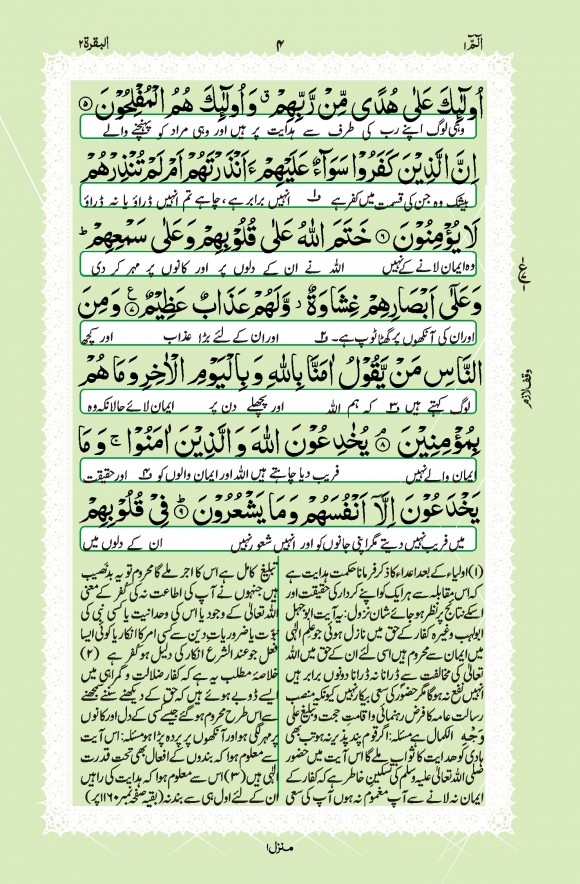 الٓمّٓ ۱
۴
البقرة ۲
اُولٰٓئِكَ عَلٰى هُدًى مِّنْ رَّبِّهِمْ ۗ وَاُولٰٓئِكَ هُمُ الْمُفْلِحُوْنَ ۵
وہی لوگ اپنے رب کی طرف سے ہدایت پر ہیں اور وہی مراد کو پہنچنے والے
اِنَّ الَّذِيْنَ كَفَرُوْا سَوَآءٌ عَلَيْهِمْ ءَاَنْذَرْتَهُمْ اَمْ لَمْ تُنْذِرْهُمْ
بیشک وہ جن کی قسمت میں کفر ہے ف۱ انہیں برابر ہے، چاہے تم انہیں ڈراؤ یا نہ ڈراؤ
لَا يُؤْمِنُوْنَ ۶ خَتَمَ اللهُ عَلٰى قُلُوْبِهِمْ وَعَلٰى سَمْعِهِمْ ؕ
وہ ایمان لانے کے نہیں اللہ نے ان کے دلوں پر اور کانوں پر مہر کر دی
وَعَلٰٓى اَبْصَارِهِمْ غِشَاوَةٌ ۫ وَّلَهُمْ عَذَابٌ عَظِيْمٌ ۷ ع وَمِنَ
اور ان کی آنکھوں پر گھٹا ٹوپ ہے۔ ف۲ اور ان کے لئے بڑا عذاب اور کچھ
النَّاسِ مَنْ يَّقُوْلُ اٰمَنَّا بِاللهِ وَبِالْيَوْمِ الْاٰخِرِ وَمَا هُمْ
لوگ کہتے ہیں ف۳ کہ ہم اللہ اور پچھلے دن پر ایمان لائے حالانکہ وہ
بِمُؤْمِنِيْنَ ۸ يُخٰدِعُوْنَ اللهَ وَالَّذِيْنَ اٰمَنُوْا ۚ وَمَا
ایمان والے نہیں فریب دیا چاہتے ہیں اللہ اور ایمان والوں کو ف۴ اور حقیقت
يَخْدَعُوْنَ اِلَّآ اَنْفُسَهُمْ وَمَا يَشْعُرُوْنَ ۹ ؕ فِيْ قُلُوْبِهِمْ
میں فریب نہیں دیتے مگر اپنی جانوں کو اور انہیں شعور نہیں ان کے دلوں میں
وقف لازم
(۱) اولیاء کے بعد اعداء کا ذکر فرمانا حکمت ہدایت ہے
کہ اس مقابلہ سے ہر ایک کو اپنے کردار کی حقیقت اور
اسکے نتائج پر نظر ہو جائے شان نزول: یہ آیت ابو جہل
ابولہب وغیرہ کفار کے حق میں نازل ہوئی جو علم الٰہی
میں ایمان سے محروم ہیں اسی لئے ان کے حق میں اللہ
تعالٰی کی مخالفت سے ڈرانا نہ ڈرانا دونوں برابر ہیں
انہیں نفع نہ ہوگا مگر حضور کی سعی بیکار نہیں کیونکہ منصب
رسالت عامہ کا فرض رہنمائی و اقامت حجت و تبلیغ علی
وجہ الکمال ہے مسئلہ: اگر قوم پند پذیر نہ ہو تب بھی
ہادی کو ہدایت کا ثواب ملے گا اس آیت میں حضور
صلی اللہ تعالٰی علیہ وسلم کی تسکین خاطر ہے کہ کفار کے
ایمان نہ لانے سے آپ مغموم نہ ہوں آپ کی سعی
تبلیغ کامل ہے اس کا اجر ملے گا محروم تو یہ بدنصیب
ہیں جنہوں نے آپ کی اطاعت نہ کی کفر کے معنی
اللہ تعالٰی کے وجود یا اس کی وحدانیت یا کسی نبی کی
نبوت یا ضروریات دین سے کسی امر کا انکار یا کوئی ایسا
فعل جو عند الشرع انکار کی دلیل ہو کفر ہے (۲)
خلاصہ مطلب یہ ہے کہ کفار ضلالت و گمراہی میں
ایسے ڈوبے ہوئے ہیں کہ حق کے دیکھنے سننے سمجھنے
سے اس طرح محروم ہو گئے جیسے کسی کے دل اور کانوں
پر مہر لگی ہو اور آنکھوں پر پردہ پڑا ہو مسئلہ: اس آیت
سے معلوم ہوا کہ بندوں کے افعال بھی تحت قدرت
الٰہی ہیں (۳) اس سے معلوم ہوا کہ ہدایت کی راہیں
ان کے لئے اول ہی سے بند نہ (بقیہ صفحہ نمبر ۱۱۶۰ پر)
منزل ۱